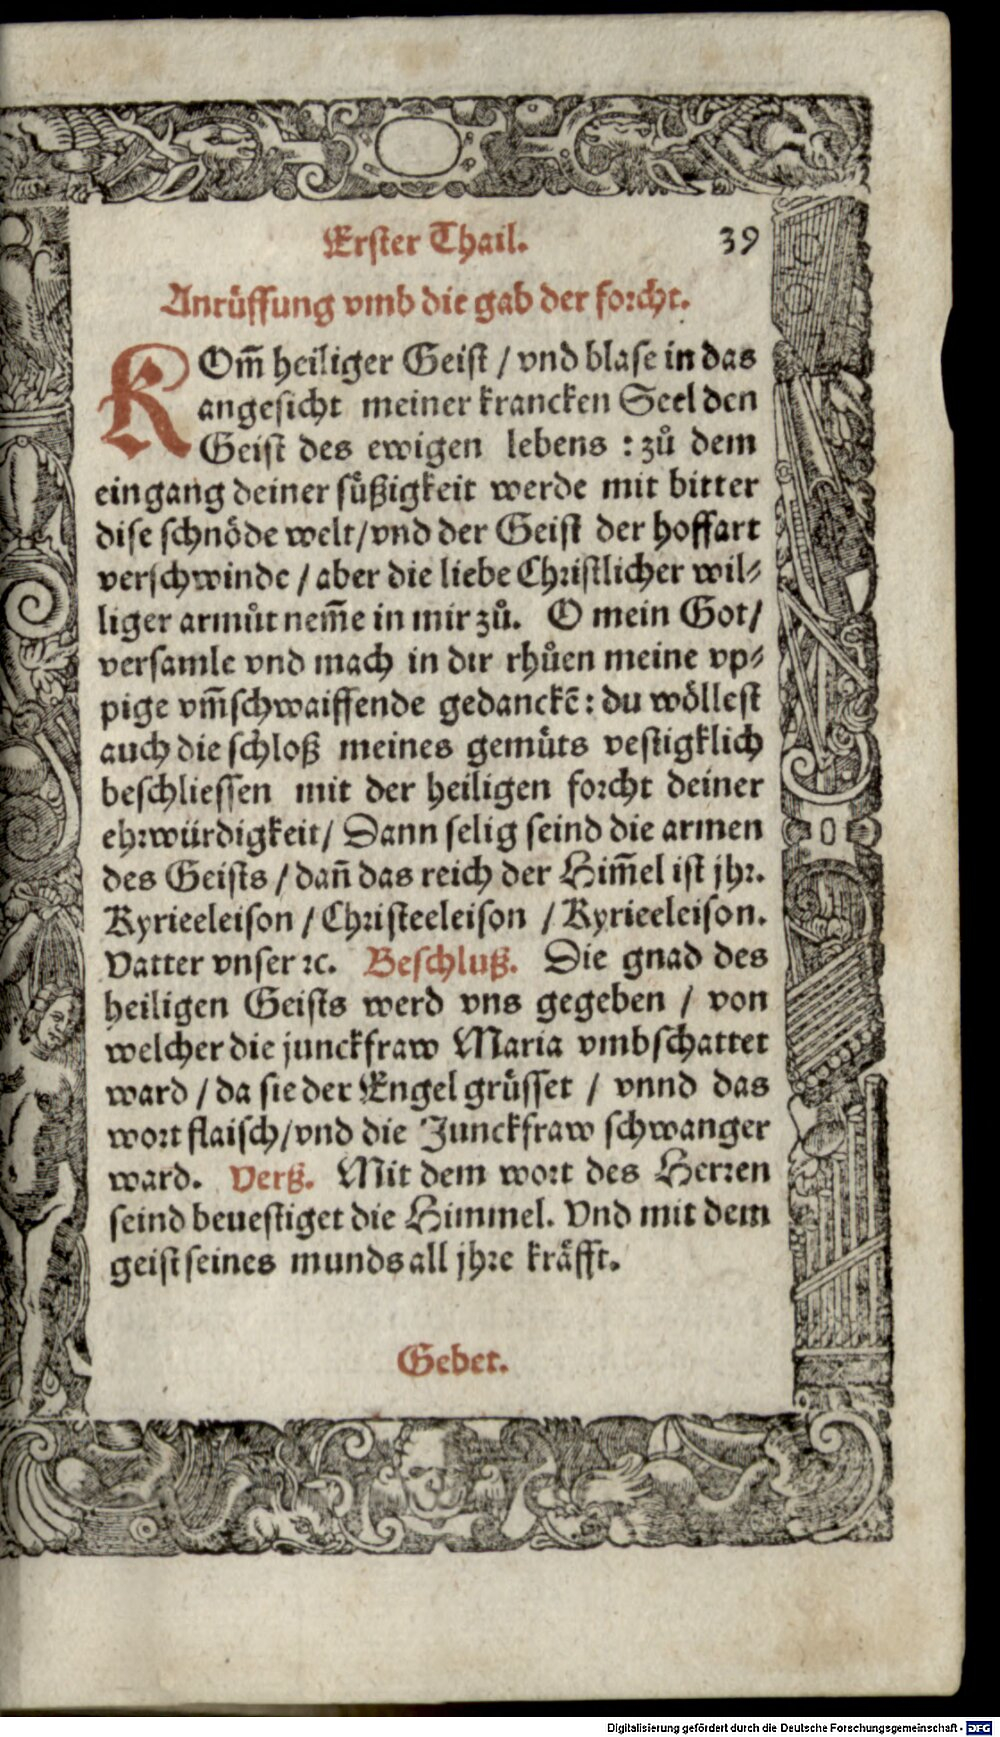 Erster Thail. 39
Anrüffung vmb die gab der forcht.
KOm̃ heiliger Geist / vnd blase in das
angesicht meiner krancken Seel den
Geist des ewigen lebens : zů dem
eingang deiner süßigkeit werde mit bitter
dise schnöde welt/vnd der Geist der hoffart
verschwinde / aber die liebe Christlicher wil⸗
liger armůt nem̃e in mir zů. O mein Got/
versamle vnd mach in dir rhůen meine vp⸗
pige vm̃schwaiffende gedanckẽ: du wöllest
auch die schloß meines gemüts vestigklich
beschliessen mit der heiligen forcht deiner
ehrwürdigkeit/ Dann selig seind die armen
des Geists / dañ das reich der Him̃el ist jhr.
Kyrieeleison / Christeeleison / Kyrieeleison.
Vatter vnser ꝛc. Beschluß. Die gnad des
heiligen Geists werd vns gegeben / von
welcher die junckfraw Maria vmbschattet
ward / da sie der Engel grüsset / vnnd das
wort flaisch/vnd die Junckfraw schwanger
ward. Verß. Mit dem wort des Herren
seind beuestiget die Himmel. Vnd mit dem
geist seines munds all jhre kräfft.
Gebet.
Digitalisierung gefördert durch die Deutsche Forschungsgemeinschaft - DFG